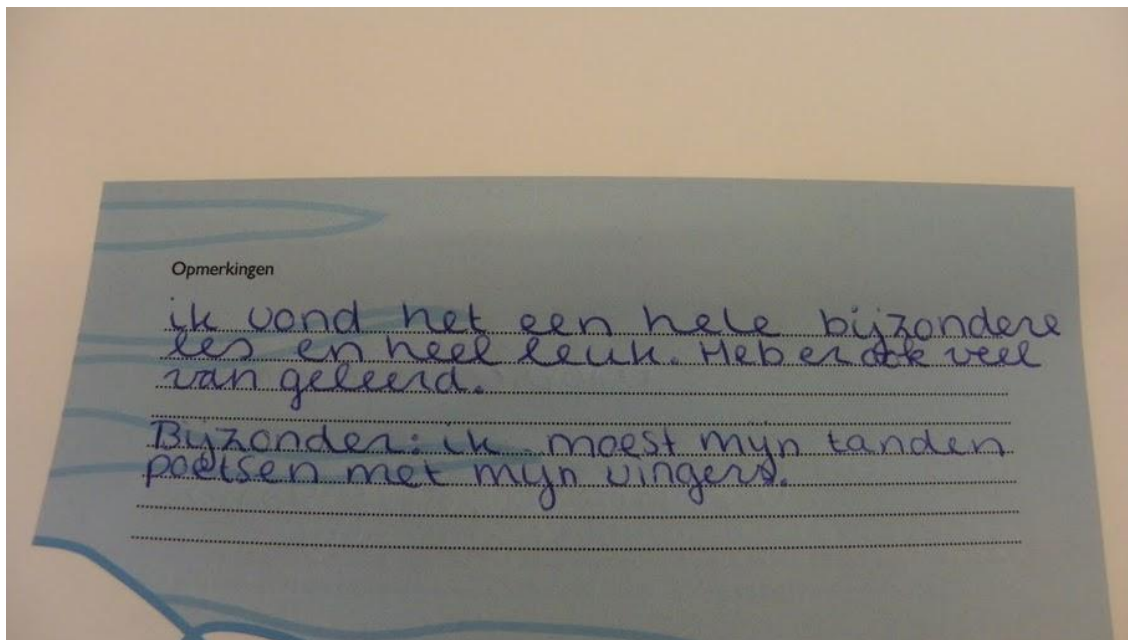 Opmerkingen
ik vond het een hele bijzondere
les en heel leuk. Heb er ook veel
van geleerd.
Bijzonder: ik moest mijn tanden
poetsen met mijn vingers.